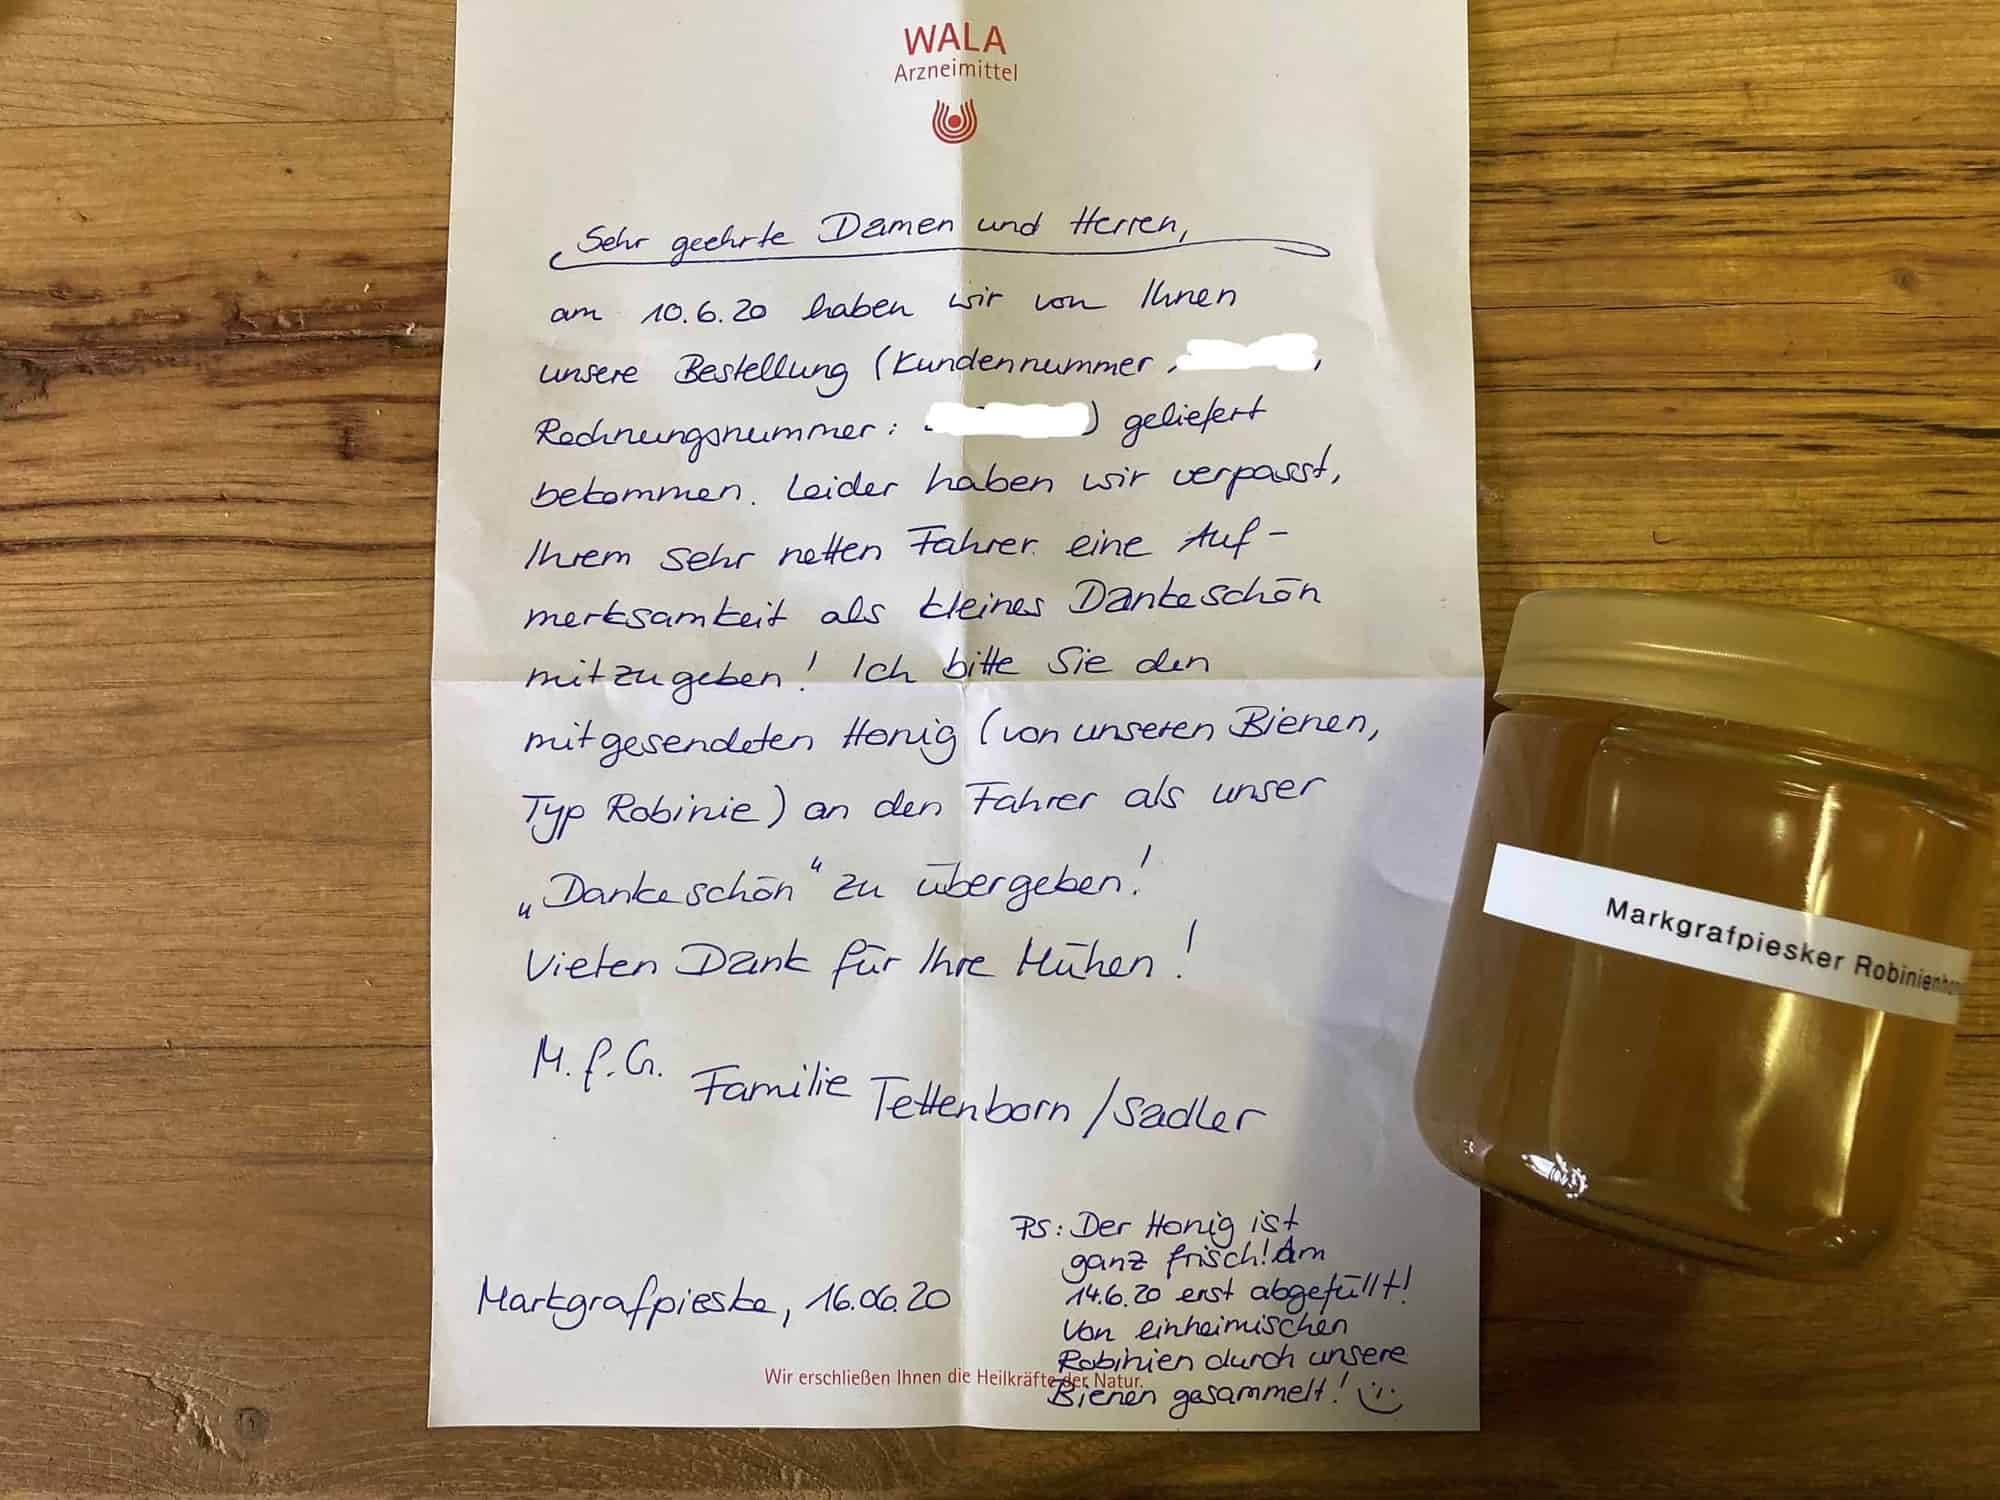 WALA
Arzneimittel
Sehr geehrte Damen und Herren,
am 10.6.20 haben wir von Ihnen
unsere Bestellung (Kundennummer
Rechnungsnummer: ) geliefert
bekommen. Leider haben wir verpasst,
Ihrem sehr netten Fahrer eine Auf-
merksamkeit als kleines Dankeschön
mitzugeben! Ich bitte Sie den
mitgesendeten Honig (von unseren Bienen,
Typ Robinie) an den Fahrer als unser
„Dankeschön“ zu übergeben!
Vielen Dank für Ihre Mühen!
M.f.G. Familie Tettenborn/Sadler
Markgrafpieske, 16.06.20
PS: Der Honig ist
ganz frisch! Am
14.6.20 erst abgefüllt!
Von einheimischen
Robinien durch unsere
Bienen gesammelt!
Wir erschließen Ihnen die Heilkräfte der Natur.
Markgrafpiesker Robinienhon